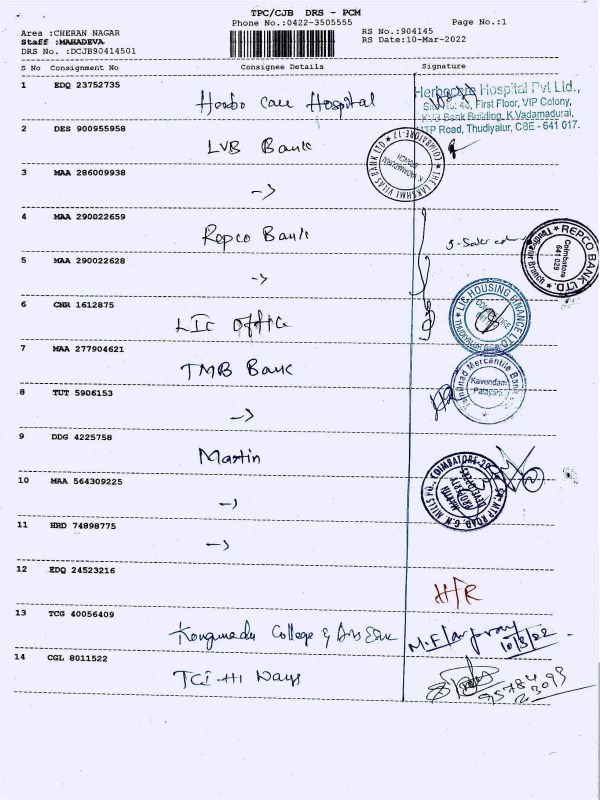 TPC/CJB DRS - PCM
Phone No.:0422-3505555 Page No.:1
Area :CHERAN NAGAR RS No.:904145
Staff :MAHADEVA RS Date:10-Mar-2022
DRS No. :DCJB90414501
S No Consignment No Consignee Details Signature
1 EDQ 23752735 Herbo Care Hospital
Herbocare Hospital Pvt Ltd.,
First Floor, VIP Colony,
KVB Bank Building, K.Vadamadurai,
MTP Road, Thudiyalur, CBE - 641 017.
2 DES 900955958 LVB Bank
THE LAKSHMI VILAS BANK LTD COIMBATORE-17
BRANCH
3 MAA 286009938 →
4 MAA 290022659 Repco Bank
REPCO BANK LTD.
Coimbatore
641 029
Branch
5 MAA 290022628 →
6 CNR 1612875 LIC office
LIC HOUSING FINANCE LTD
7 MAA 277904621 TMB Bank
Tamilnad Mercantile Bank
Kavundam
Palayam
8 TUT 5906153 →
9 DDG 4225758 Martin
10 MAA 564309225 →
MTP ROAD, G.N. MILLS PO, COIMBATORE-29
MARTIN
PROPERTY
11 HRD 74898775 →
12 EDQ 24523216 H/R
13 TCG 40056409 Kongunadu College
10/3/22
14 CGL 8011522 TCI Hi Ways
95784
23093